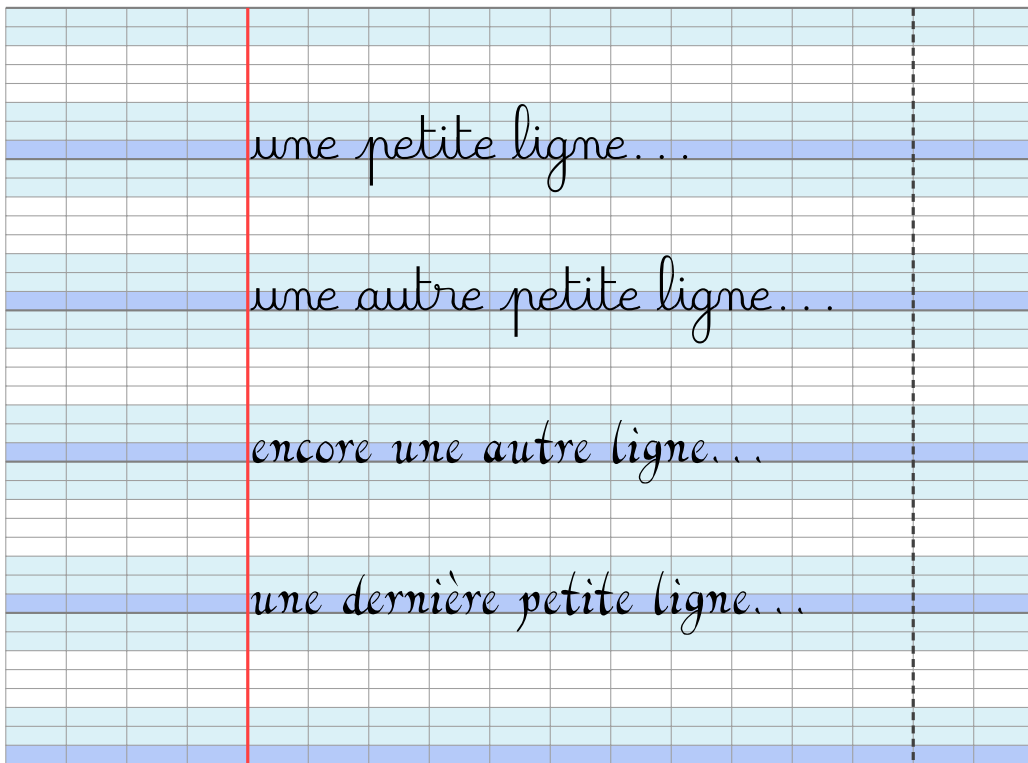 une petite ligne...
une autre petite ligne...
encore une autre ligne...
une dernière petite ligne...